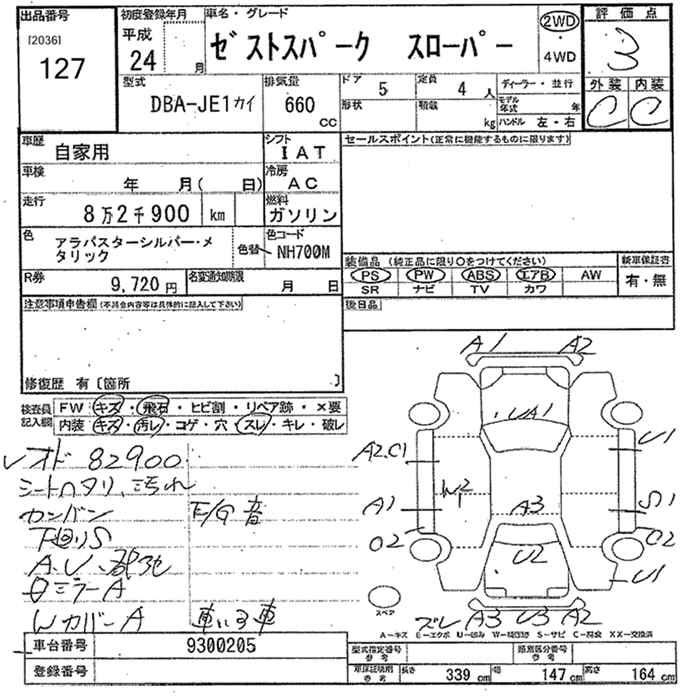 出品番号
[2036]
127
初度登録年月
平成
24
月
車名・グレード
ゼストスパーク スローパー
2WD
・
4WD
評価点
3
型式
DBA-JE1カイ
排気量
660
CC
ドア
5
定員
4 人
形状
積載
kg
ディーラー・並行
モデル年式 年
ハンドル 左・右
外装 内装
C C
車歴
自家用
シフト
IAT
車検
年 月( 日)
冷房
AC
走行
8万2千900 km
燃料
ガソリン
色
アラバスターシルバー・メタリック
色替
色コード
NH700M
R券
9,720 円
名変通知期限
月 日
セールスポイント(正常に機能するものに限ります)
装備品 (純正品に限り○をつけてください)
PS PW ABS エアB AW
SR ナビ TV カワ
新車保証書
有・無
後日品
注意事項申告欄(不具合内容等は具体的に記入して下さい)
修復歴 有〔箇所 〕
検査員記入欄
FW キズ・飛石・ヒビ割・リペア跡・×要
内装・キズ・汚レ・コゲ・穴・スレ・キレ・破レ
オド 82900
シートヘタリ、汚れ
カンバン
E/G 音
下廻りS
A、U、
ミラーA
WカバーA
車いす車
A1 A2
UA1
A2.C1
U1
W2
1
A1
A3
S1
02
C2
U2
U1
スペア
ズレ A3 U3 A2
A-キズ E-エクボ U-凹み W-補修跡 S-サビ C-腐食 XX-交換済
車台番号
9300205
登録番号
型式指定番号
参考
類別区分番号
参考
車両証明別
参考
長さ 339 cm 幅 147 cm 高さ 164 cm